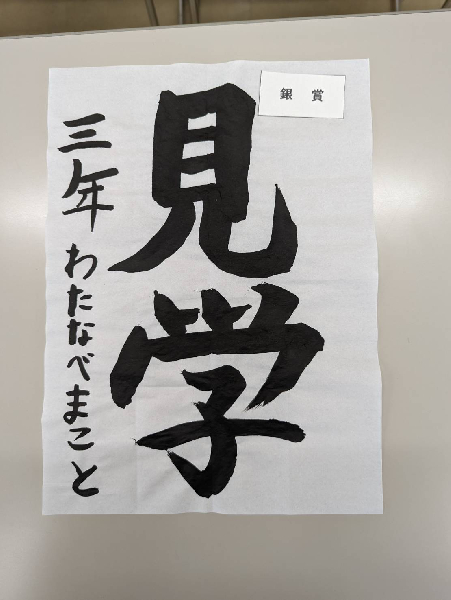 銀賞
見学
三年 わたなべまこと